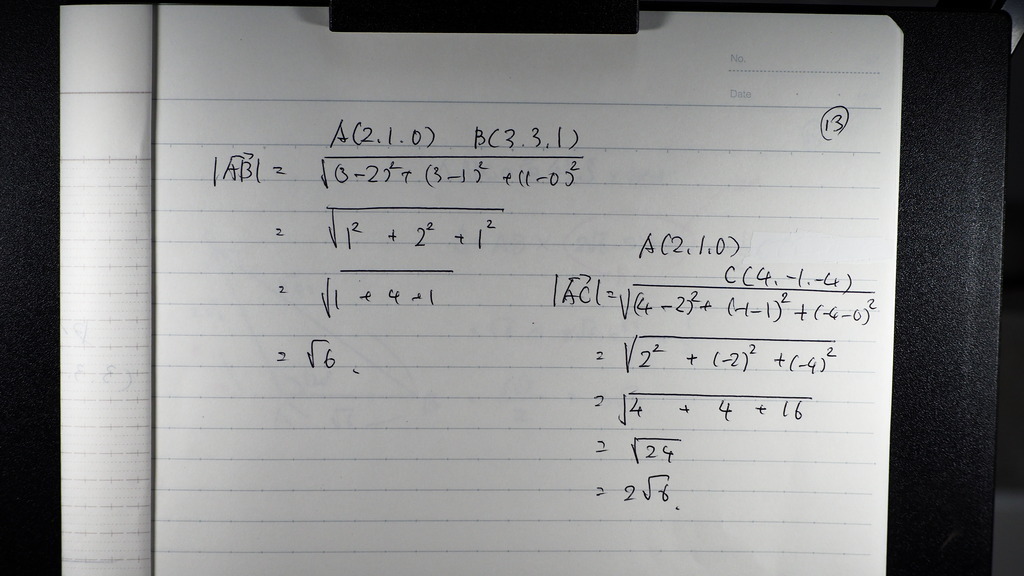 No.
Date
13
A(2.1.0) B(3.3.1)
|AB→| = √(3-2)² + (3-1)² + (1-0)²
= √1² + 2² + 1²
= √1 + 4 + 1
= √6.
A(2.1.0)
C(4.-1.-4)
|AC→| = √(4-2)² + (-1-1)² + (-4-0)²
= √2² + (-2)² + (-4)²
= √4 + 4 + 16
= √24
= 2√6.